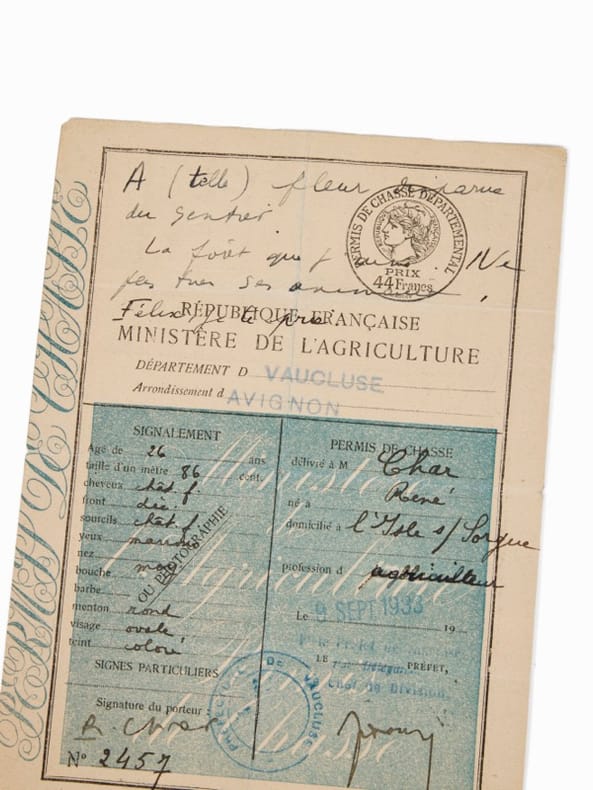 A (telle) fleur
du sentier
La forêt que j' Ne
pas tuer ses
Félix, je te prie
PERMIS DE CHASSE DÉPARTEMENTAL
RÉPUBLIQUE FRANÇAISE
PRIX
44 Francs
RÉPUBLIQUE FRANÇAISE
MINISTÈRE DE L'AGRICULTURE
DÉPARTEMENT D VAUCLUSE
Arrondissement d AVIGNON
SIGNALEMENT
Age de 26 ans
taille d'un mètre 86 cent.
cheveux chât. f.
front déc.
sourcils chât. f.
yeux marrons
nez moy
bouche
barbe
menton rond
visage ovale
teint coloré
OU PHOTOGRAPHIE
SIGNES PARTICULIERS
Signature du porteur :
R. Char
N° 2457
PERMIS DE CHASSE
délivré à M Char
René
né a
domicilié à l'Isle s/ Sorgue
profession d agriculteur
Le 9 SEPT 1933 19
LE PRÉFET,
Chef de Division
DE VAUCLUSE
Ministère
de
l'Agriculture
Permis
de Chasse